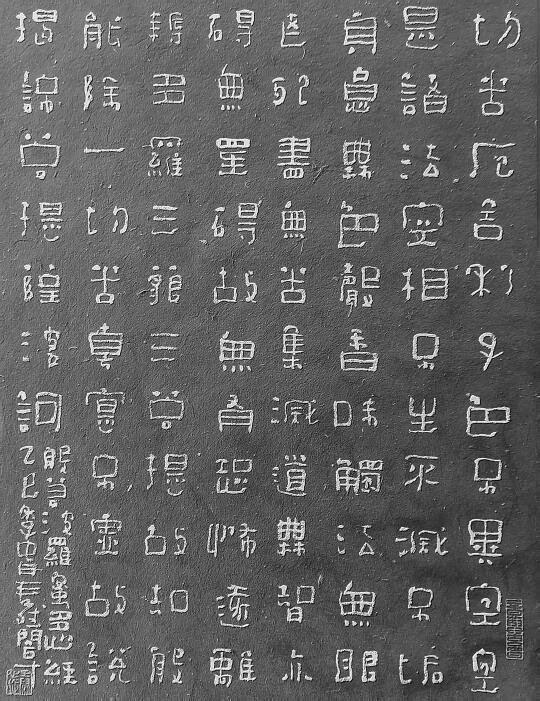 切苦厄舍利子色不異空空
是諸法空相不生不滅不垢
身意無色聲香味觸法無眼
老死盡無苦集滅道無智亦
碍無罣碍故無有恐怖遠離
耨多羅三藐三菩提故知般
能除一切苦真實不虛故說
揭諦菩提薩婆訶
般若波羅蜜多心經
乙巳季